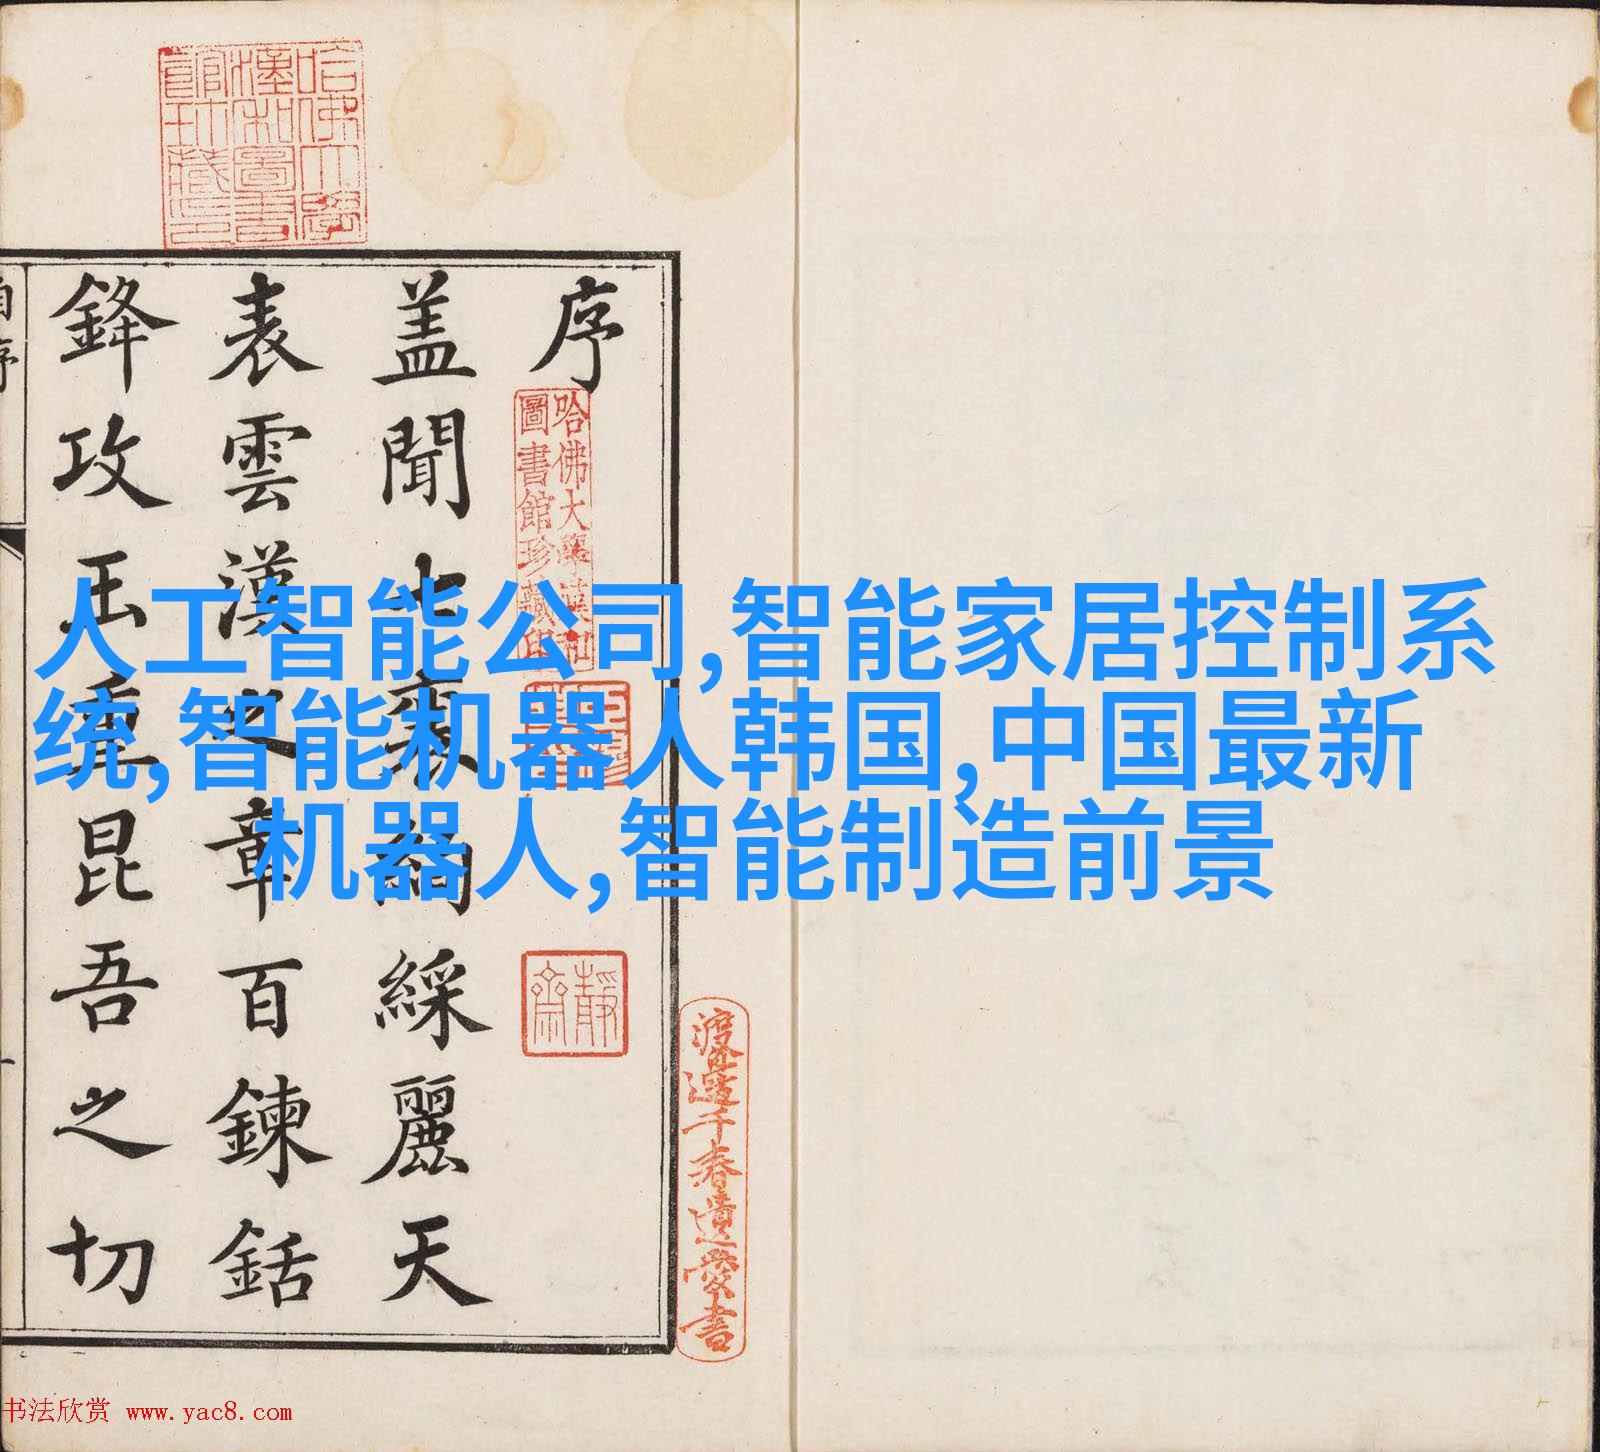 人工智能公司,智能家居控制系
统,智能机器人韩国,中国最新
机器人,智能制造前景
序
蓋聞七襄絢綵麗天
表雲漢之章百鍊銛
鋒攻玉重昆吾之切
自序
哈佛大學漢和
圖書館珍藏印
哈佛大學
漢和圖書
館珍藏印
靜齋
渡邊千春遺愛書
书法欣赏 www.yac8.com